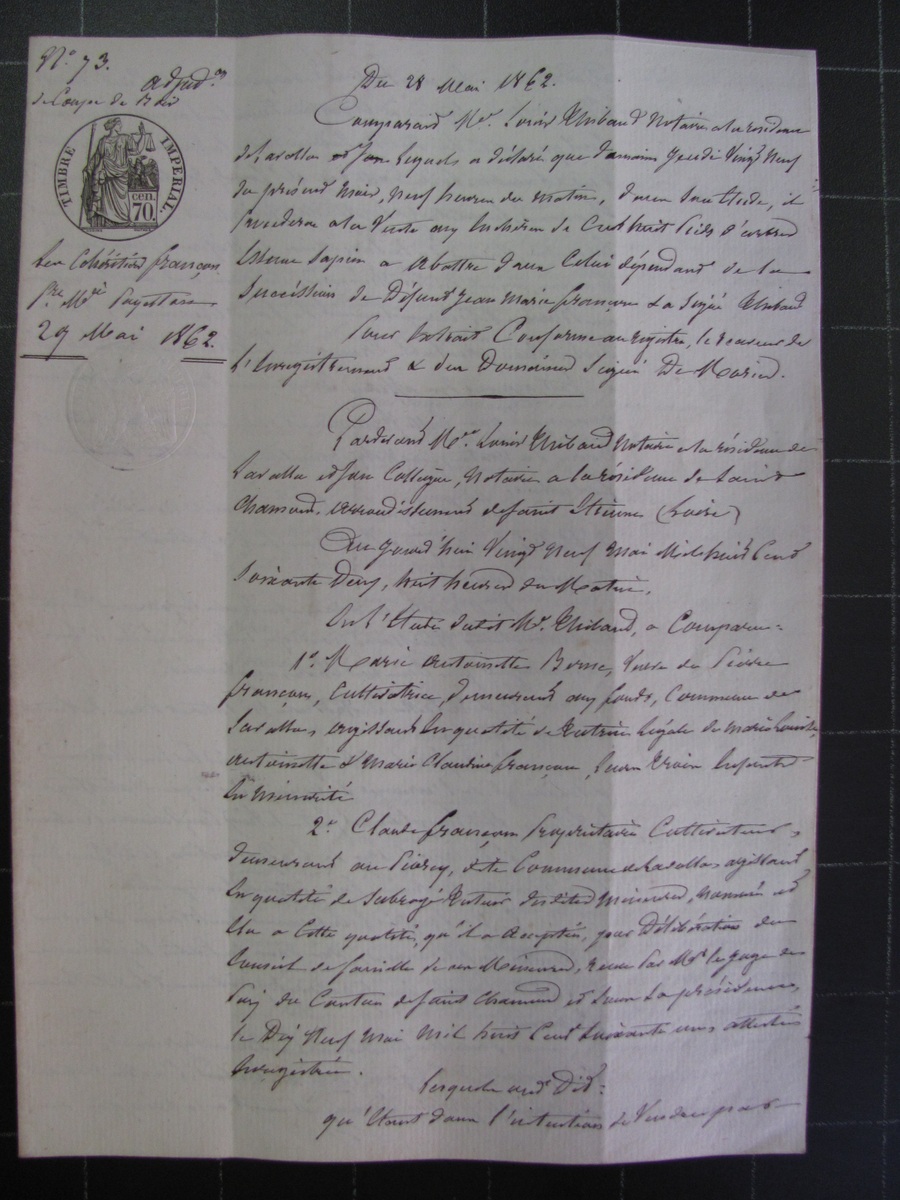 N° 73.
adjud.on
de Coupe de Bois
TIMBRE IMPERIAL
cen. 70.
Les Cohéritiers françon
29 Mai 1862.
Du 28 Mai 1862.
Comparait Me. Louis Thibaud Notaire a la résidence
de Lavalla Lequel a déclaré que demain Jeudi Vingt Neuf
du présent mois, neuf heures du matin, dans son Etude, il
procedera a la Vente aux Enchères de Cent huit pieds d'arbres
Essence Sapin a abattre dans Celui dépendant de la
Succession de Défunt Jean Marie françon Signé Thibaud
Pour Extrait Conforme au registre, le receveur de
L'Enregistrement & des Domaines Signé De
Pardevant Me. Louis Thibaud Notaire a la résidence de
Lavalla et son Collègue, Notaire a la résidence de Saint
Chamond, arrondissement de Saint Etienne (Loire)
Au Jourd'hui Vingt Neuf Mai Mil huit Cent
Soixante Deux, huit heures du Matin,
En l'Etude dudit Me. Thibaud, a Comparu =
1°. Marie Antoinette Veuve de Pierre
françon, Cultivatrice, demeurant aux fonds, Commune de
Lavalla, agissant En qualité de Tutrice Légale de Marie
antoinette & Marie Claudine françon, Ses trois Enfants
En Minorité
2°. Claude françon propriétaire Cultivateur,
demeurant au dite Commune de Lavalla agissant
En qualité de Subrogé Tuteur desdites Mineures, nommé et
Elu a Cette qualité, qu'il a Acceptée, par Délibération du
Conseil de famille de ces Mineures, tenue par Mr. le Juge de
Paix du Canton de Saint Chamond et sous Sa présidence,
le Dix Neuf Mai Mil huit Cent Soixante un,
Enregistrée.
Lesquels ont Dit =
qu'Etant dans l'intention de Vendre par